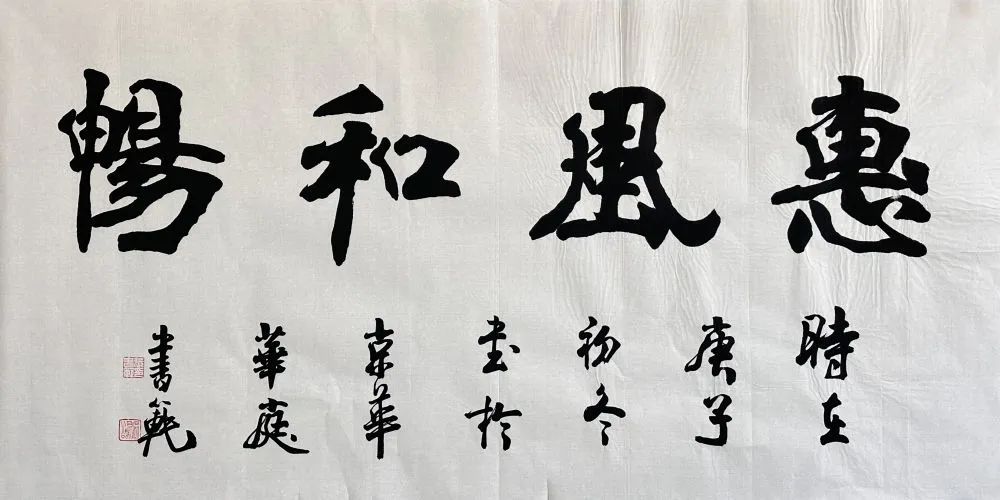 惠風和暢
時在
庚子
初冬
書於
京華
華庭
書範